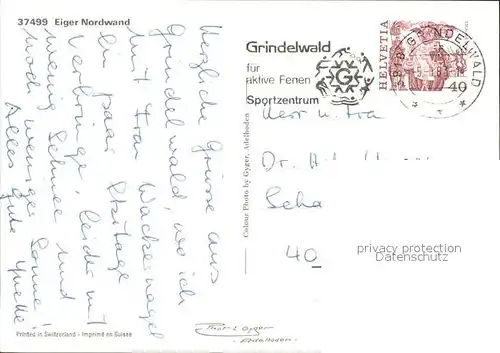 37499 Eiger Nordwand
Herzliche Grüsse aus
Grindelwald, wo ich
mit Frau Wackernagel
ein paar Skitage
verbringe, leider mit
wenig Schnee und
noch weniger Sonne!
Alles Gute Yvette
Printed in Switzerland - Imprimé en Suisse
Colour Photo by Gyger, Adelboden
Photo Gyger
Adelboden
Grindelwald
für
aktive Ferien
Sportzentrum
G
GRINDELWALD
HELVETIA
40
Herr u. Frau
Dr.
40
privacy protection
Datenschutz